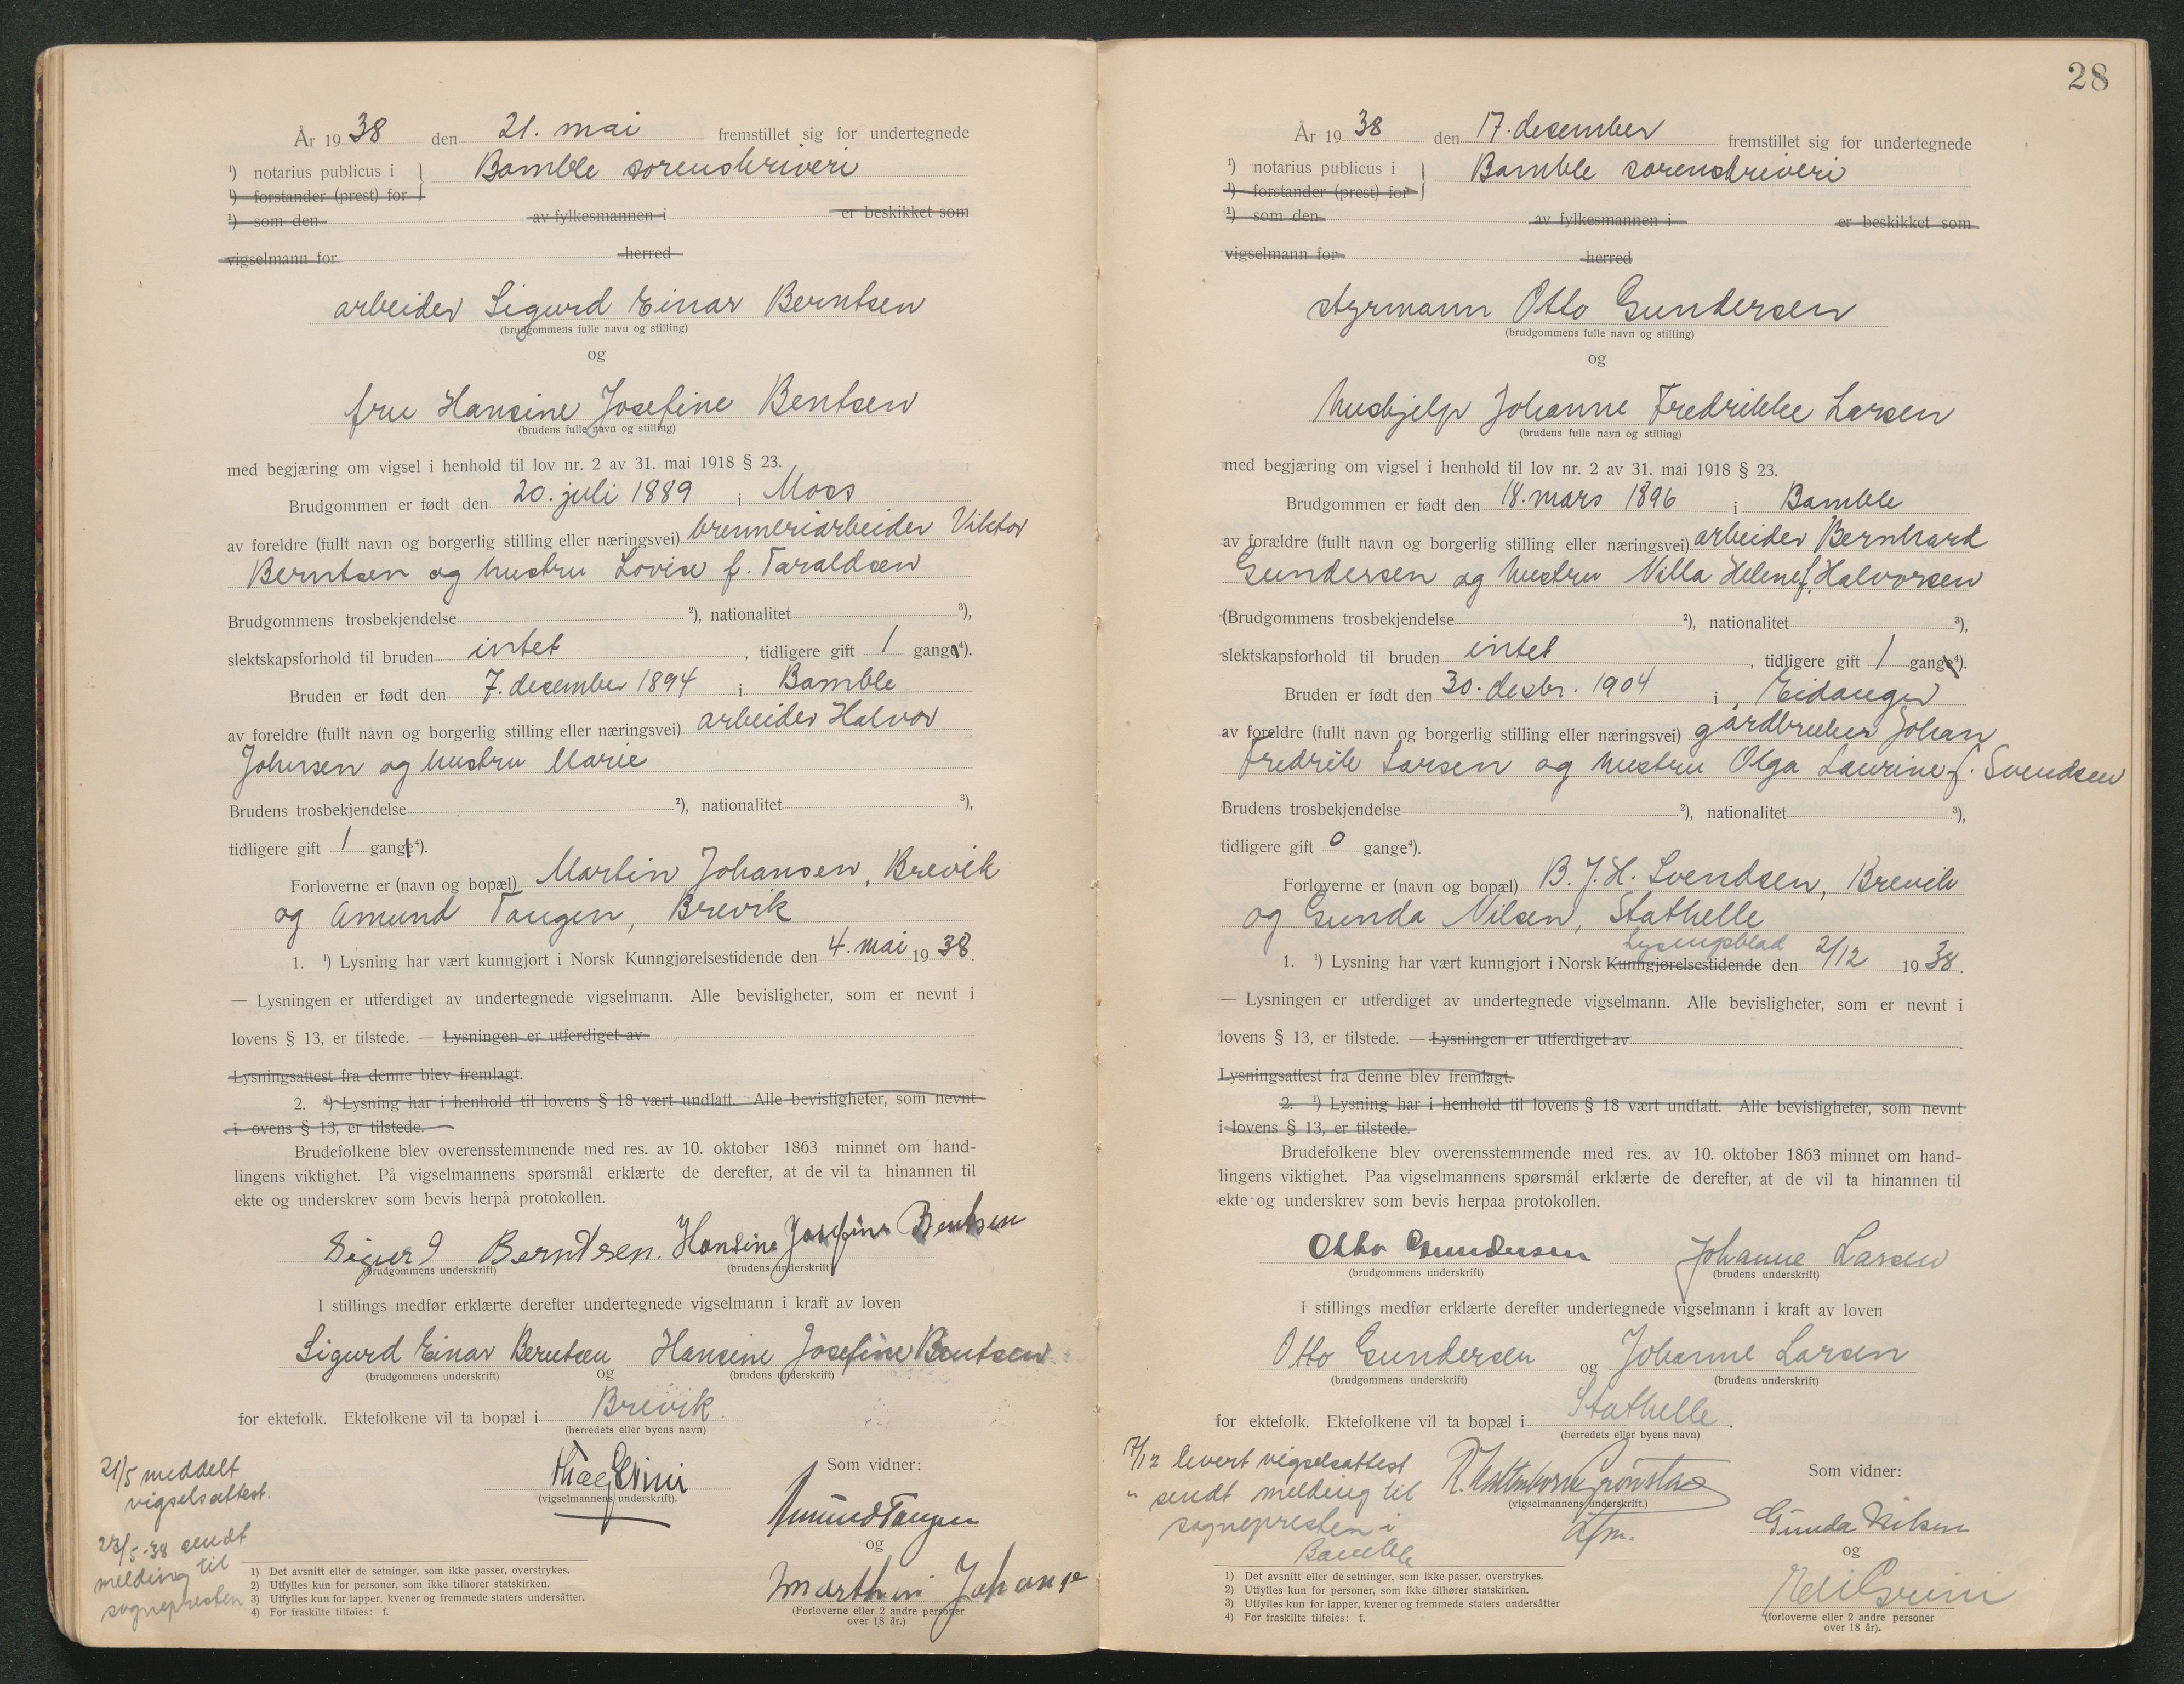 År 1938 den 21. mai fremstillet sig for undertegnede
¹) notarius publicus i } Bamble sorenskriveri
¹) forstander (prest) for
¹) som den av fylkesmannen i er beskikket som
vigselmann for herred
arbeider Sigurd Einar Berntsen
(brudgommens fulle navn og stilling)
og
fru Hansine Josefine Bentsen
(brudens fulle navn og stilling)
med begjæring om vigsel i henhold til lov nr. 2 av 31. mai 1918 § 23.
Brudgommen er født den 20. juli 1889 i Moss
av foreldre (fullt navn og borgerlig stilling eller næringsvei) brenneriarbeider Viktor
Berntsen og hustru Lovise f. Taraldsen
Brudgommens trosbekjendelse ²), nationalitet ³),
slektskapsforhold til bruden intet, tidligere gift 1 gang⁴).
Bruden er født den 7. desember 1894 i Bamble
av foreldre (fullt navn og borgerlig stilling eller næringsvei) arbeider Halvor
Johnsen og hustru Marie
Brudens trosbekjendelse ²), nationalitet ³),
tidligere gift 1 gang⁴).
Forloverne er (navn og bopæl) Martin Johansen, Brevik
og Amund Tangen, Brevik
1. ¹) Lysning har vært kunngjort i Norsk Kunngjørelsestidende den 4. mai 1938.
— Lysningen er utferdiget av undertegnede vigselmann. Alle bevisligheter, som er nevnt i
lovens § 13, er tilstede. — Lysningen er utferdiget av
Lysningsattest fra denne blev fremlagt.
2. ¹) Lysning har i henhold til lovens § 18 vært undlatt. Alle bevisligheter, som nevnt
i ovens § 13, er tilstede.
Brudefolkene blev overensstemmende med res. av 10. oktober 1863 minnet om hand-
lingens viktighet. På vigselmannens spørsmål erklærte de derefter, at de vil ta hinannen til
ekte og underskrev som bevis herpå protokollen.
Sigurd Berntsen. Hansine Josefine Bentsen
(brudgommens underskrift) (brudens underskrift)
I stillings medfør erklærte derefter undertegnede vigselmann i kraft av loven
Sigurd Einar Berntsen og Hansine Josefine Bentsen
(brudgommens underskrift) (brudens underskrift)
for ektefolk. Ektefolkene vil ta bopæl i Brevik.
(herredets eller byens navn)
21/5 meddelt
vigselsattest.
(vigselmannens underskrift).
Som vidner:
Amund Tangen
og
23/5-38 sendt
melding til
sognepresten
Marthin Johanse
(Forloverne eller 2 andre personer
over 18 år.)
1) Det avsnitt eller de setninger, som ikke passer, overstrykes.
2) Utfylles kun for personer, som ikke tilhører statskirken.
3) Utfylles kun for lapper, kvener og fremmede staters undersåtter.
4) For fraskilte tilføies: f.
28
År 1938 den 17. desember fremstillet sig for undertegnede
¹) notarius publicus i } Bamble sorenskriveri
¹) forstander (prest) for
¹) som den av fylkesmannen i er beskikket som
vigselmann for herred
styrmann Otto Gundersen
(brudgommens fulle navn og stilling)
og
hushjelp Johanne Fredrikke Larsen
(brudens fulle navn og stilling)
med begjæring om vigsel i henhold til lov nr. 2 av 31. mai 1918 § 23.
Brudgommen er født den 18. mars 1896 i Bamble
av forældre (fullt navn og borgerlig stilling eller næringsvei) arbeider Bernhard
Gundersen og hustru Villa Helene f. Halvorsen
(Brudgommens trosbekjendelse ²), nationalitet ³),
slektskapsforhold til bruden intet, tidligere gift 1 gang⁴).
Bruden er født den 30. desbr. 1904 i Eidanger
av foreldre (fullt navn og borgerlig stilling eller næringsvei) gårdbruker Johan
Fredrik Larsen og hustru Olga Laurine f. Svendsen
Brudens trosbekjendelse ²), nationalitet ³),
tidligere gift 0 gange⁴).
Forloverne er (navn og bopæl) B. J. H. Svendsen, Brevik
og Gunda Nilsen, Stathelle
Lysingsblad
1. ¹) Lysning har vært kunngjort i Norsk Kunngjørelsestidende den 2/12 1938.
— Lysningen er utferdiget av undertegnede vigselmann. Alle bevisligheter, som er nevnt i
lovens § 13, er tilstede. — Lysningen er utferdiget av
Lysningsattest fra denne blev fremlagt.
2. ¹) Lysning har i henhold til lovens § 18 vært undlatt. Alle bevisligheter, som nevnt
i lovens § 13, er tilstede.
Brudefolkene blev overensstemmende med res. av 10. oktober 1863 minnet om hand-
lingens viktighet. Paa vigselmannens spørsmål erklærte de derefter, at de vil ta hinannen til
ekte og underskrev som bevis herpaa protokollen.
Otto Gundersen Johanne Larsen
(brudgommens underskrift) (brudens underskrift)
I stillings medfør erklærte derefter undertegnede vigselmann i kraft av loven
Otto Gundersen og Johanne Larsen
(brudgommens underskrift) (brudens underskrift)
for ektefolk. Ektefolkene vil ta bopæl i Stathelle.
(herredets eller byens navn)
17/12 levert vigselsattest
" sendt melding til
sognepresten i
Bamble
(vigselmannens underskrift.)
Som vidner:
Gunda Nilsen
og
(forloverne eller 2 andre personer
over 18 år).
1) Det avsnitt eller de setninger, som ikke passer, overstrykes.
2) Utfylles kun for personer, som ikke tilhører statskirken.
3) Utfylles kun for lapper, kvener og fremmede staters undersåtter
4) For fraskilte tilføies: f.